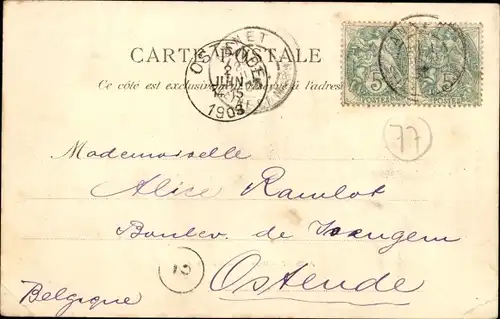 CARTE POSTALE
Ce côté est exclusivement réservé à l'adresse
OSTENDE
JUIN
1903
5 5
POSTES POSTES
77
Mademoiselle
Alice Ramlot
Boulev. de
Ostende
Belgique